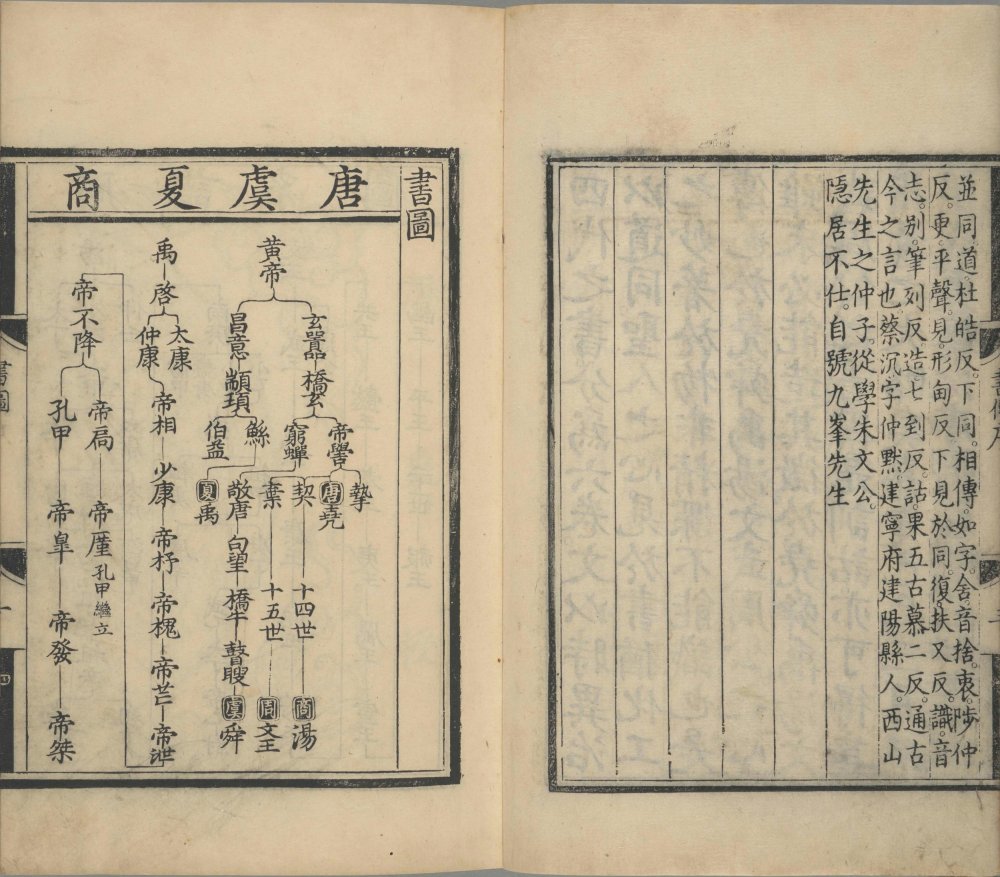 並同道杜皓反。下同。相傳。如字。舍音捨。衷。陟仲
反。更。平聲。見。形甸反。下見於同。復。扶又反。識。音
志。別。筆列反。造。七到反。詁。果五古慕二反。通古
今之言也蔡沉字仲默。建寧府建陽縣人。西山
先生之仲子。從學朱文公。
隱居不仕。自號九峯先生
書圖
唐虞夏商
黃帝
玄囂 橋玄
帝嚳
摯
唐 堯
契 十四世 商 湯
棄 十五世 周 文王
昌意 顓頊
窮蟬
敬唐 句望 橋牛 瞽瞍 虞 舜
鯀
夏 禹
伯益
禹 啓
太康
仲康
帝相 少康 帝杼 帝槐 帝芒 帝泄
帝不降
帝扃 帝厪 孔甲繼立
孔甲 帝皐 帝發 帝桀
書圖